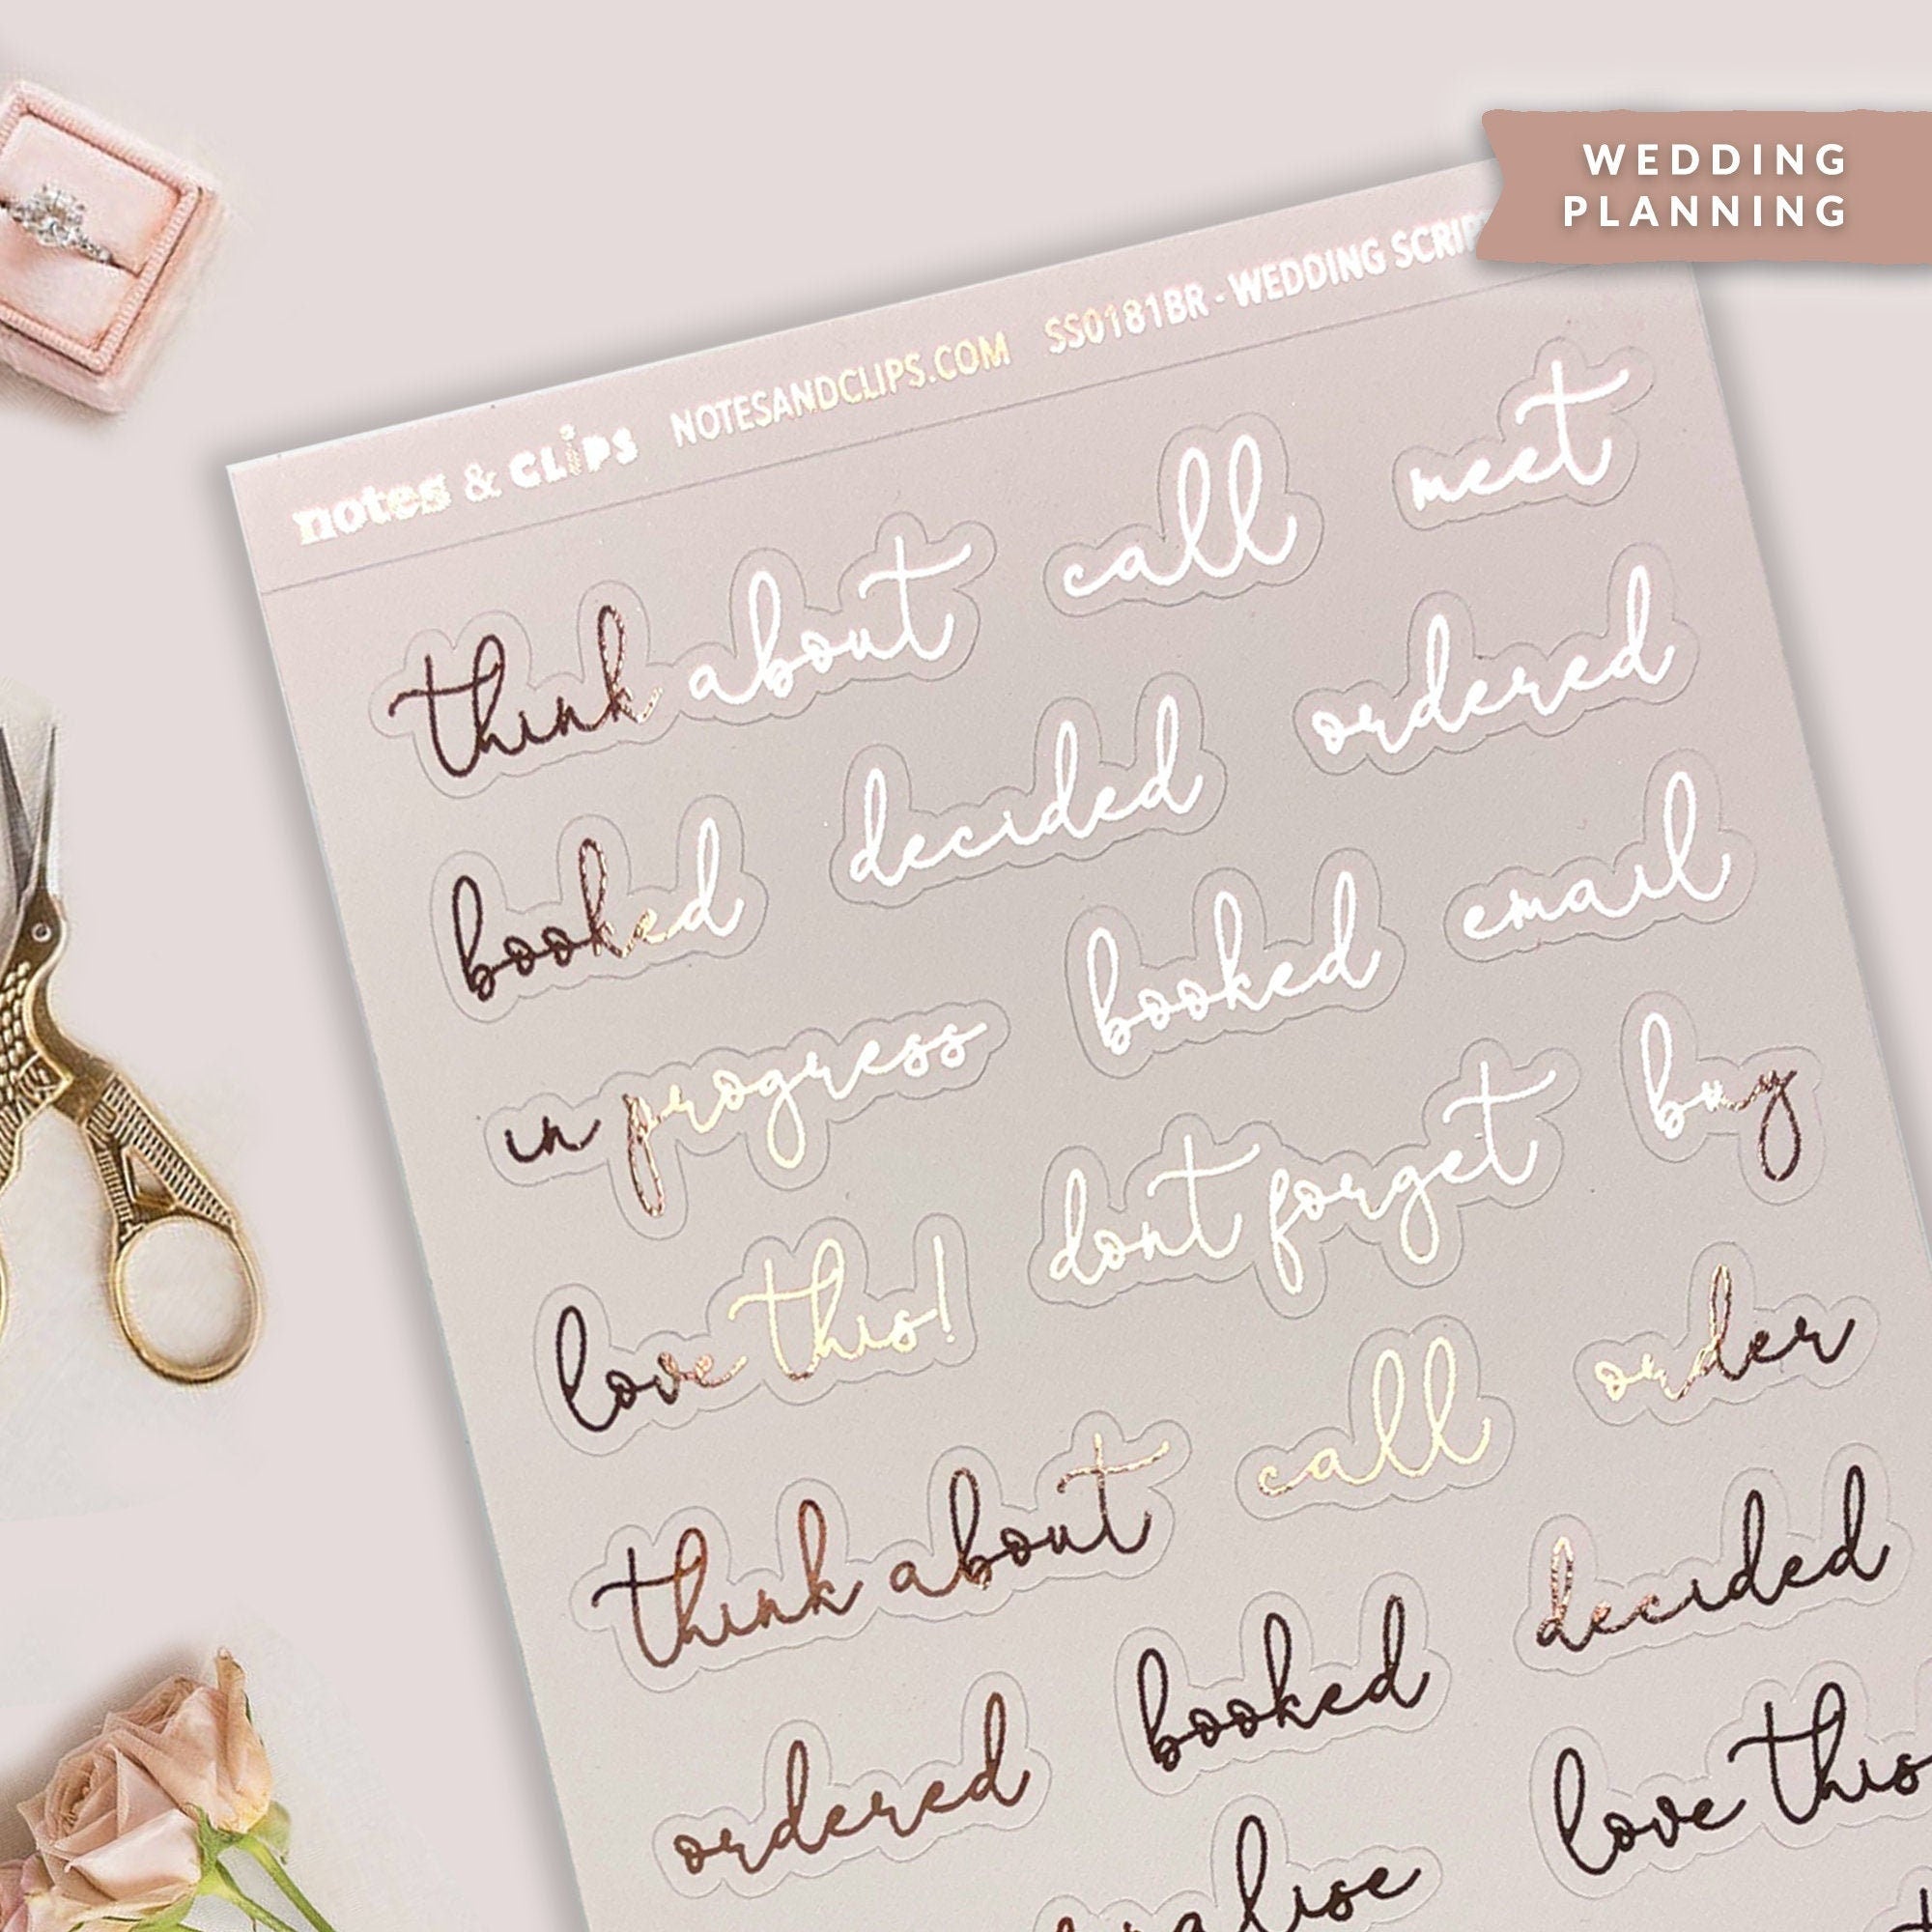 WEDDING
PLANNING
notes & CLiPS NOTESANDCLIPS.COM SS0181BR - WEDDING
think about call meet
booked decided ordered
in progress booked email
love this! dont forget buy
think about call order
ordered booked decided
love this